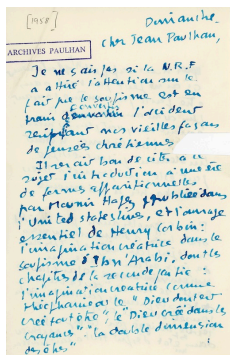 [1958]
Dimanche.
ARCHIVES PAULHAN
Cher Jean Paulhan,
Je ne sais pas si la N.R.F
a attiré l'attention sur le
fait que le soufisme est en
train d'envahir l'occident
nos vieilles façons
de pensées chrétiennes
Il serait bon de citer à ce
sujet l'introduction à une
de formes apparitionnelles
par publiée dans
l'United States lines, et l'ouvrage
essentiel de Henry Corbin:
l'imagination créatrice dans le
soufisme d'Ibn'Arabi, dont les
chapitres de la seconde partie:
l'imagination créatrice comme
théophanie ou le "Dieu dont est
créé tout être" le "Dieu créé dans les
croyances" "la double dimension
des êtres"